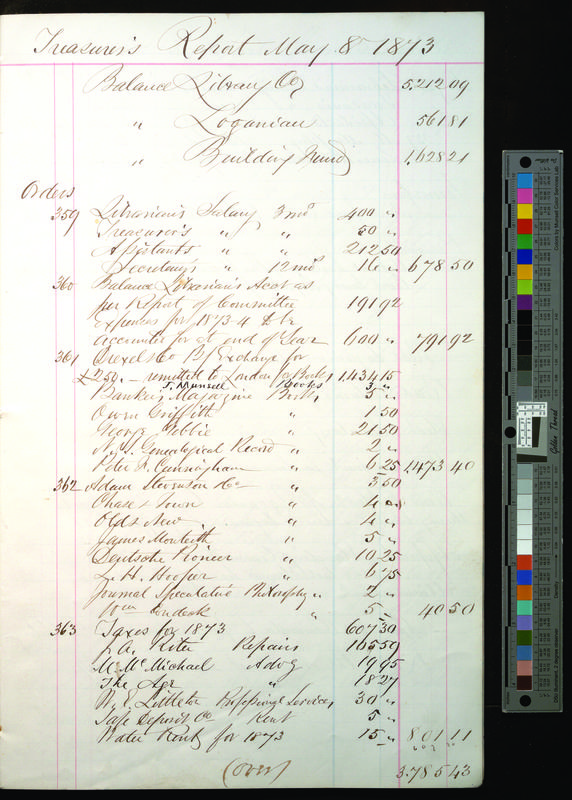 Treasurer's Report May 8th 1873
Balance Library Co 5,212 09
" Loganian 561 81
" Building Fund 1,628 21
Orders
359 Librarian's Salary 3 mos 400 "
Treasurer's " " 50 "
Assistants " " 212 50
Secretary's " 12 mos 16 " 678 50
360 Balance Librarian's Acct as
per Report of Committee 191 92
Expenses for 1873-4 to be
accounted for at end of Year 600 " 791 92
361 Drexel & Co Bf Exchange for
£250. - remitted to London for Books 1,434 15
J. Munsell Books 3 "
Banker's Magazine Books 5 "
Owen Griffith " 1 50
George Gebbie " 21 50
N.Y. Genealogical Record " 2 "
Peter D. Cunningham " 6 25 1,473 40
362 Adam Stevenson & Co " 3 50
Chase & Town " 4 "
Old & New " 4 "
James Monteith " 5 "
Deutsche Pioneer " 10 25
L. H. Hooper " 6 75
Journal Speculative Philosophy " 2 "
" 5 " 40 50
363 Taxes for 1873 607 30
Repairs 165 50
M. McMichael Advg 19 95
The Age " 18 27
W. E. Littleton Professional Services 30 "
Safe Deposit Co Rent 5 "
Water Rent for 1873 15 " 801 11
(over) 3,785 43